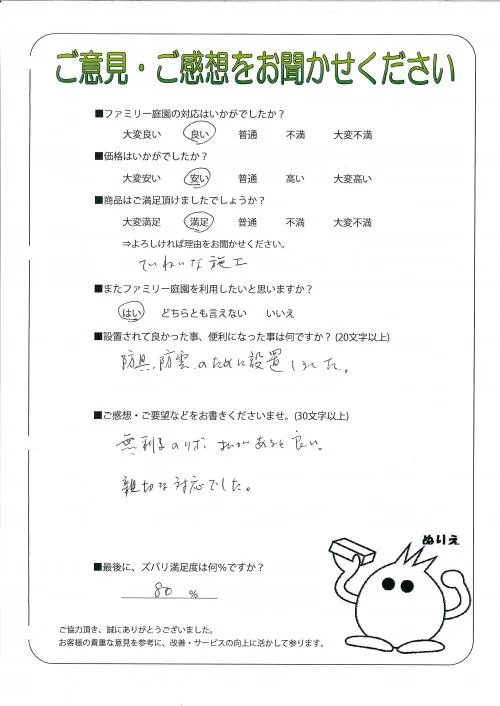 ご意見・ご感想をお聞かせください
■ファミリー庭園の対応はいかがでしたか？
大変良い 良い 普通 不満 大変不満
■価格はいかがでしたか？
大変安い 安い 普通 高い 大変高い
■商品はご満足頂けましたでしょうか？
大変満足 満足 普通 不満 大変不満
⇒よろしければ理由をお聞かせください。
ていねいな施工
■またファミリー庭園を利用したいと思いますか？
はい どちらとも言えない いいえ
■設置されて良かった事、便利になった事は何ですか？(20文字以上)
防風、防雪、のために設置しました。
■ご感想・ご要望などをお書きくださいませ。(30文字以上)
無利子のリボ払いがあると良い。
親切な対応でした。
ぬりえ
■最後に、ズバリ満足度は何％ですか？
80 %
ご協力頂き、誠にありがとうございました。
お客様の貴重な意見を参考に、改善・サービスの向上に活かして参ります。